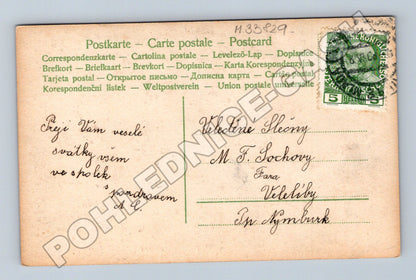 H.33829.
Postkarte - Carte postale - Postcard
Correspondenzkarte - Cartolina postale - Levelező-Lap - Dopisnice
Brefkort - Briefkaart - Brevkort - Dopisnica - Karta Korespondencyjna
Tarjeta postal - Открытое письмо - Дописна карта - Cartão postal
Korespondenční lístek - Weltpostverein - Union postale universelle
5 5
Přeji Vám veselé
svátky všem
ve spolek
s pozdravem
Velectěné Slečny
M. T. Sochovy
Fara
Veleliby
Pr. Nymburk
POHLEDNICE-